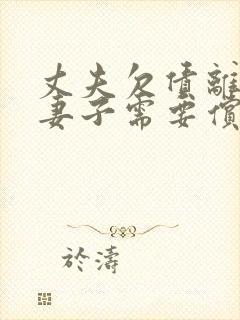 丈夫欠债離
妻子需要償
於濤